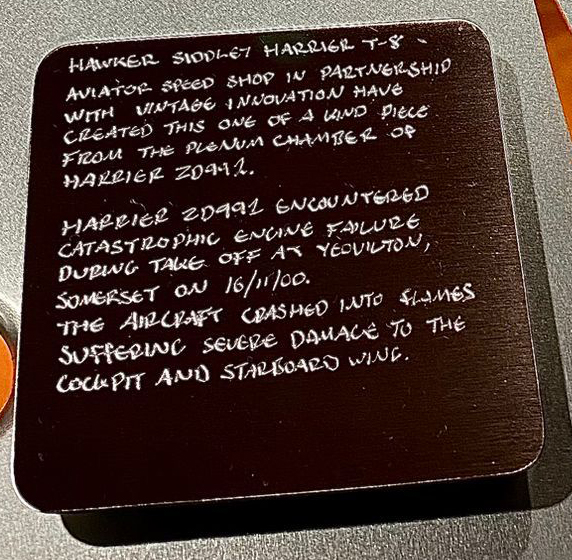 HAWKER SIDDLEY HARRIER T-8 -
AVIATOR SPEED SHOP IN PARTNERSHIP
WITH VINTAGE INNOVATION HAVE
CREATED THIS ONE OF A KIND PIECE
FROM THE PLENUM CHAMBER OF
HARRIER ZD992.
HARRIER ZD992 ENCOUNTERED
CATASTROPHIC ENGINE FAILURE
DURING TAKE OFF AT YEOVILTON,
SOMERSET ON 16/11/00.
THE AIRCRAFT CRASHED INTO FLAMES
SUFFERING SEVERE DAMAGE TO THE
COCKPIT AND STARBOARD WING.